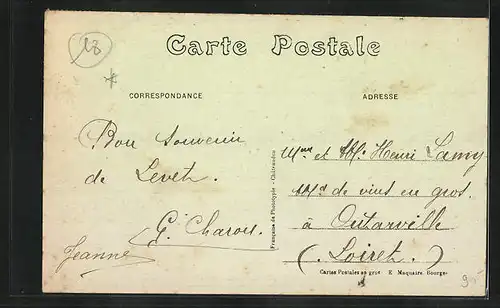 18
Carte Postale
CORRESPONDANCE
ADRESSE
Bon souvenir
de Levet.
E. Charon.
Jeanne
Mme et M. Henri Lamy
Md de vins en gros.
à Outarville
(Loiret.)
Française de Phototypie - Châteaudun
Cartes Postales en gros E. Maquaire, Bourges